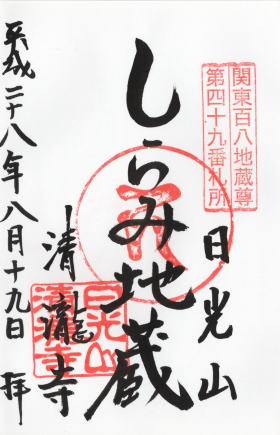 関東百八地蔵尊
第四十九番札所
日光山
しらみ地蔵
清瀧寺
平成二十八年八月十九日 拝